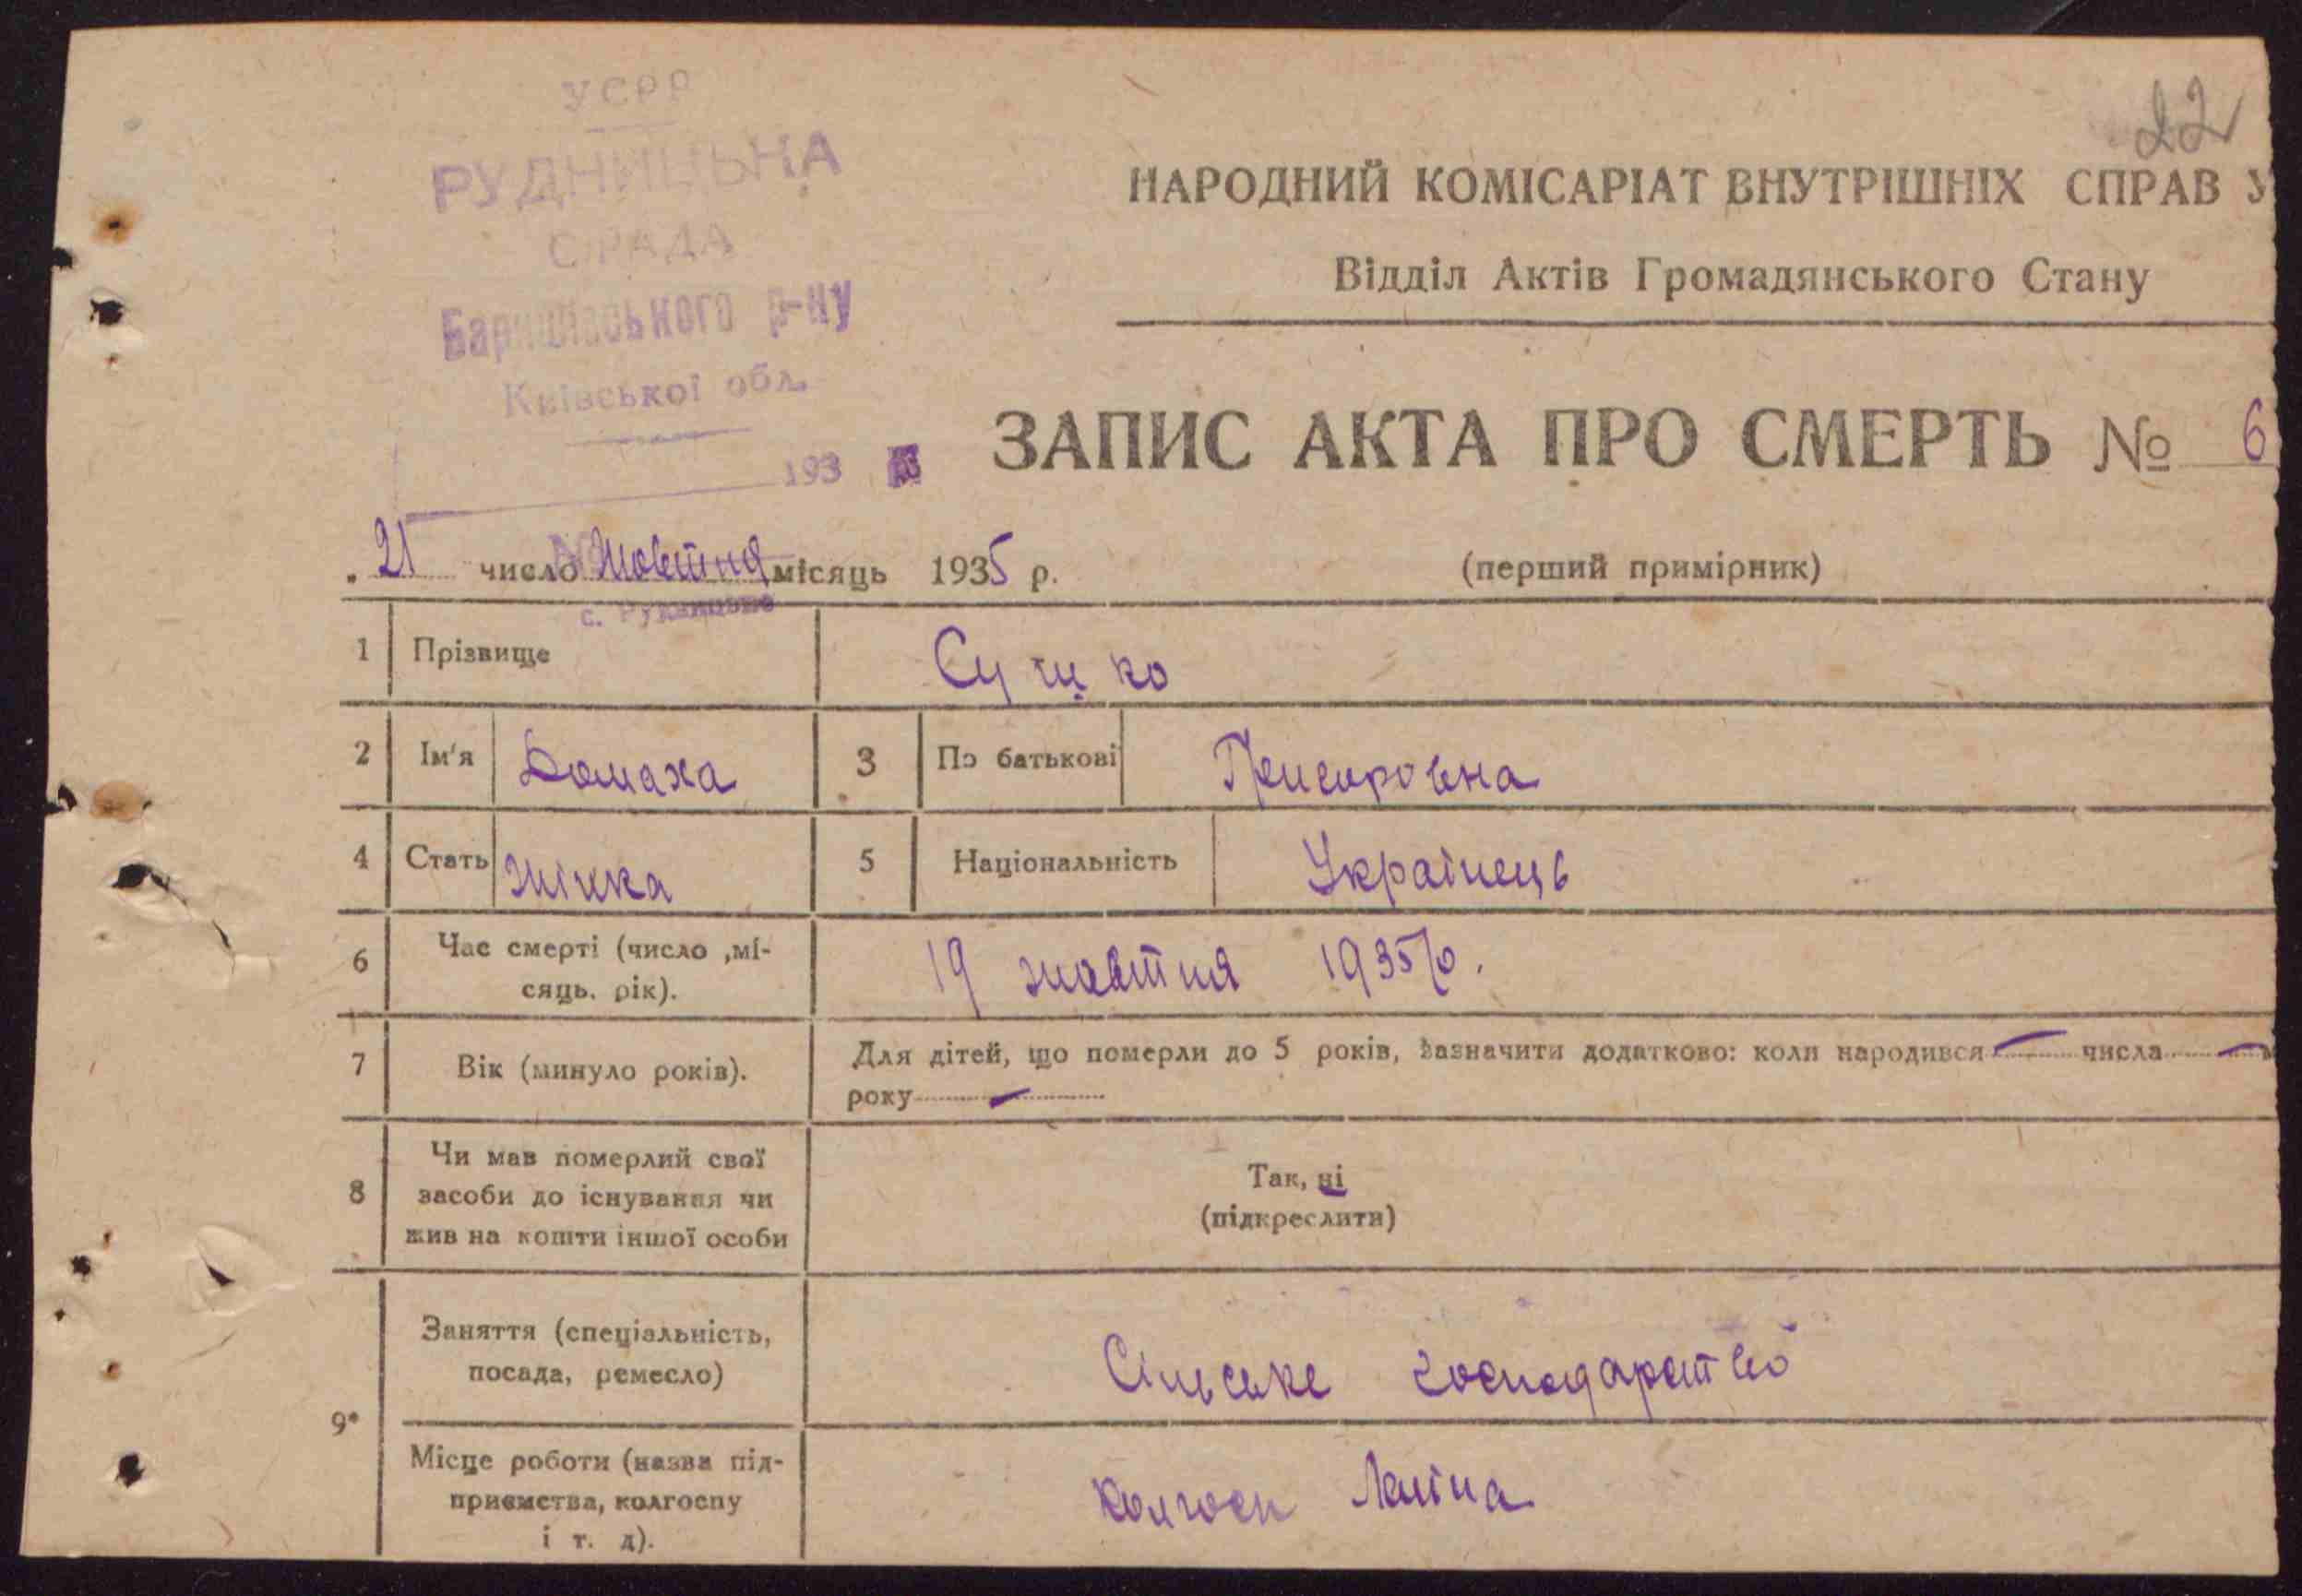 22
УСРР
РУДНИЦЬКА
С. РАДА
Баришівського р-ну
Київської обл.
193
НАРОДНИЙ КОМІСАРІАТ ВНУТРІШНІХ СПРАВ У
Відділ Актів Громадянського Стану
ЗАПИС АКТА ПРО СМЕРТЬ № 6
21 число Жовтня місяць 1935 р.
(перший примірник)
с. Рудницьке
1 Прізвище
2 Ім'я Домаха 3 По батькові
4 Стать Жінка 5 Національність Українець
6 Час смерті (число ,мі-
сяць. рік).
19 жовтня 1935 р.
7 Вік (минуло років).
Для дітей, що померли до 5 років, зазначити додатково: коли народився числа
року
8 Чи мав померлий свої
засоби до існування чи
жив на кошти іншої особи
Так, ні
(підкреслити)
9*
Заняття (спеціальність,
посада, ремесло)
Сільське господарство
Місце роботи (назва під-
приємства, колгоспу
і т. д).
Колгосп Леніна